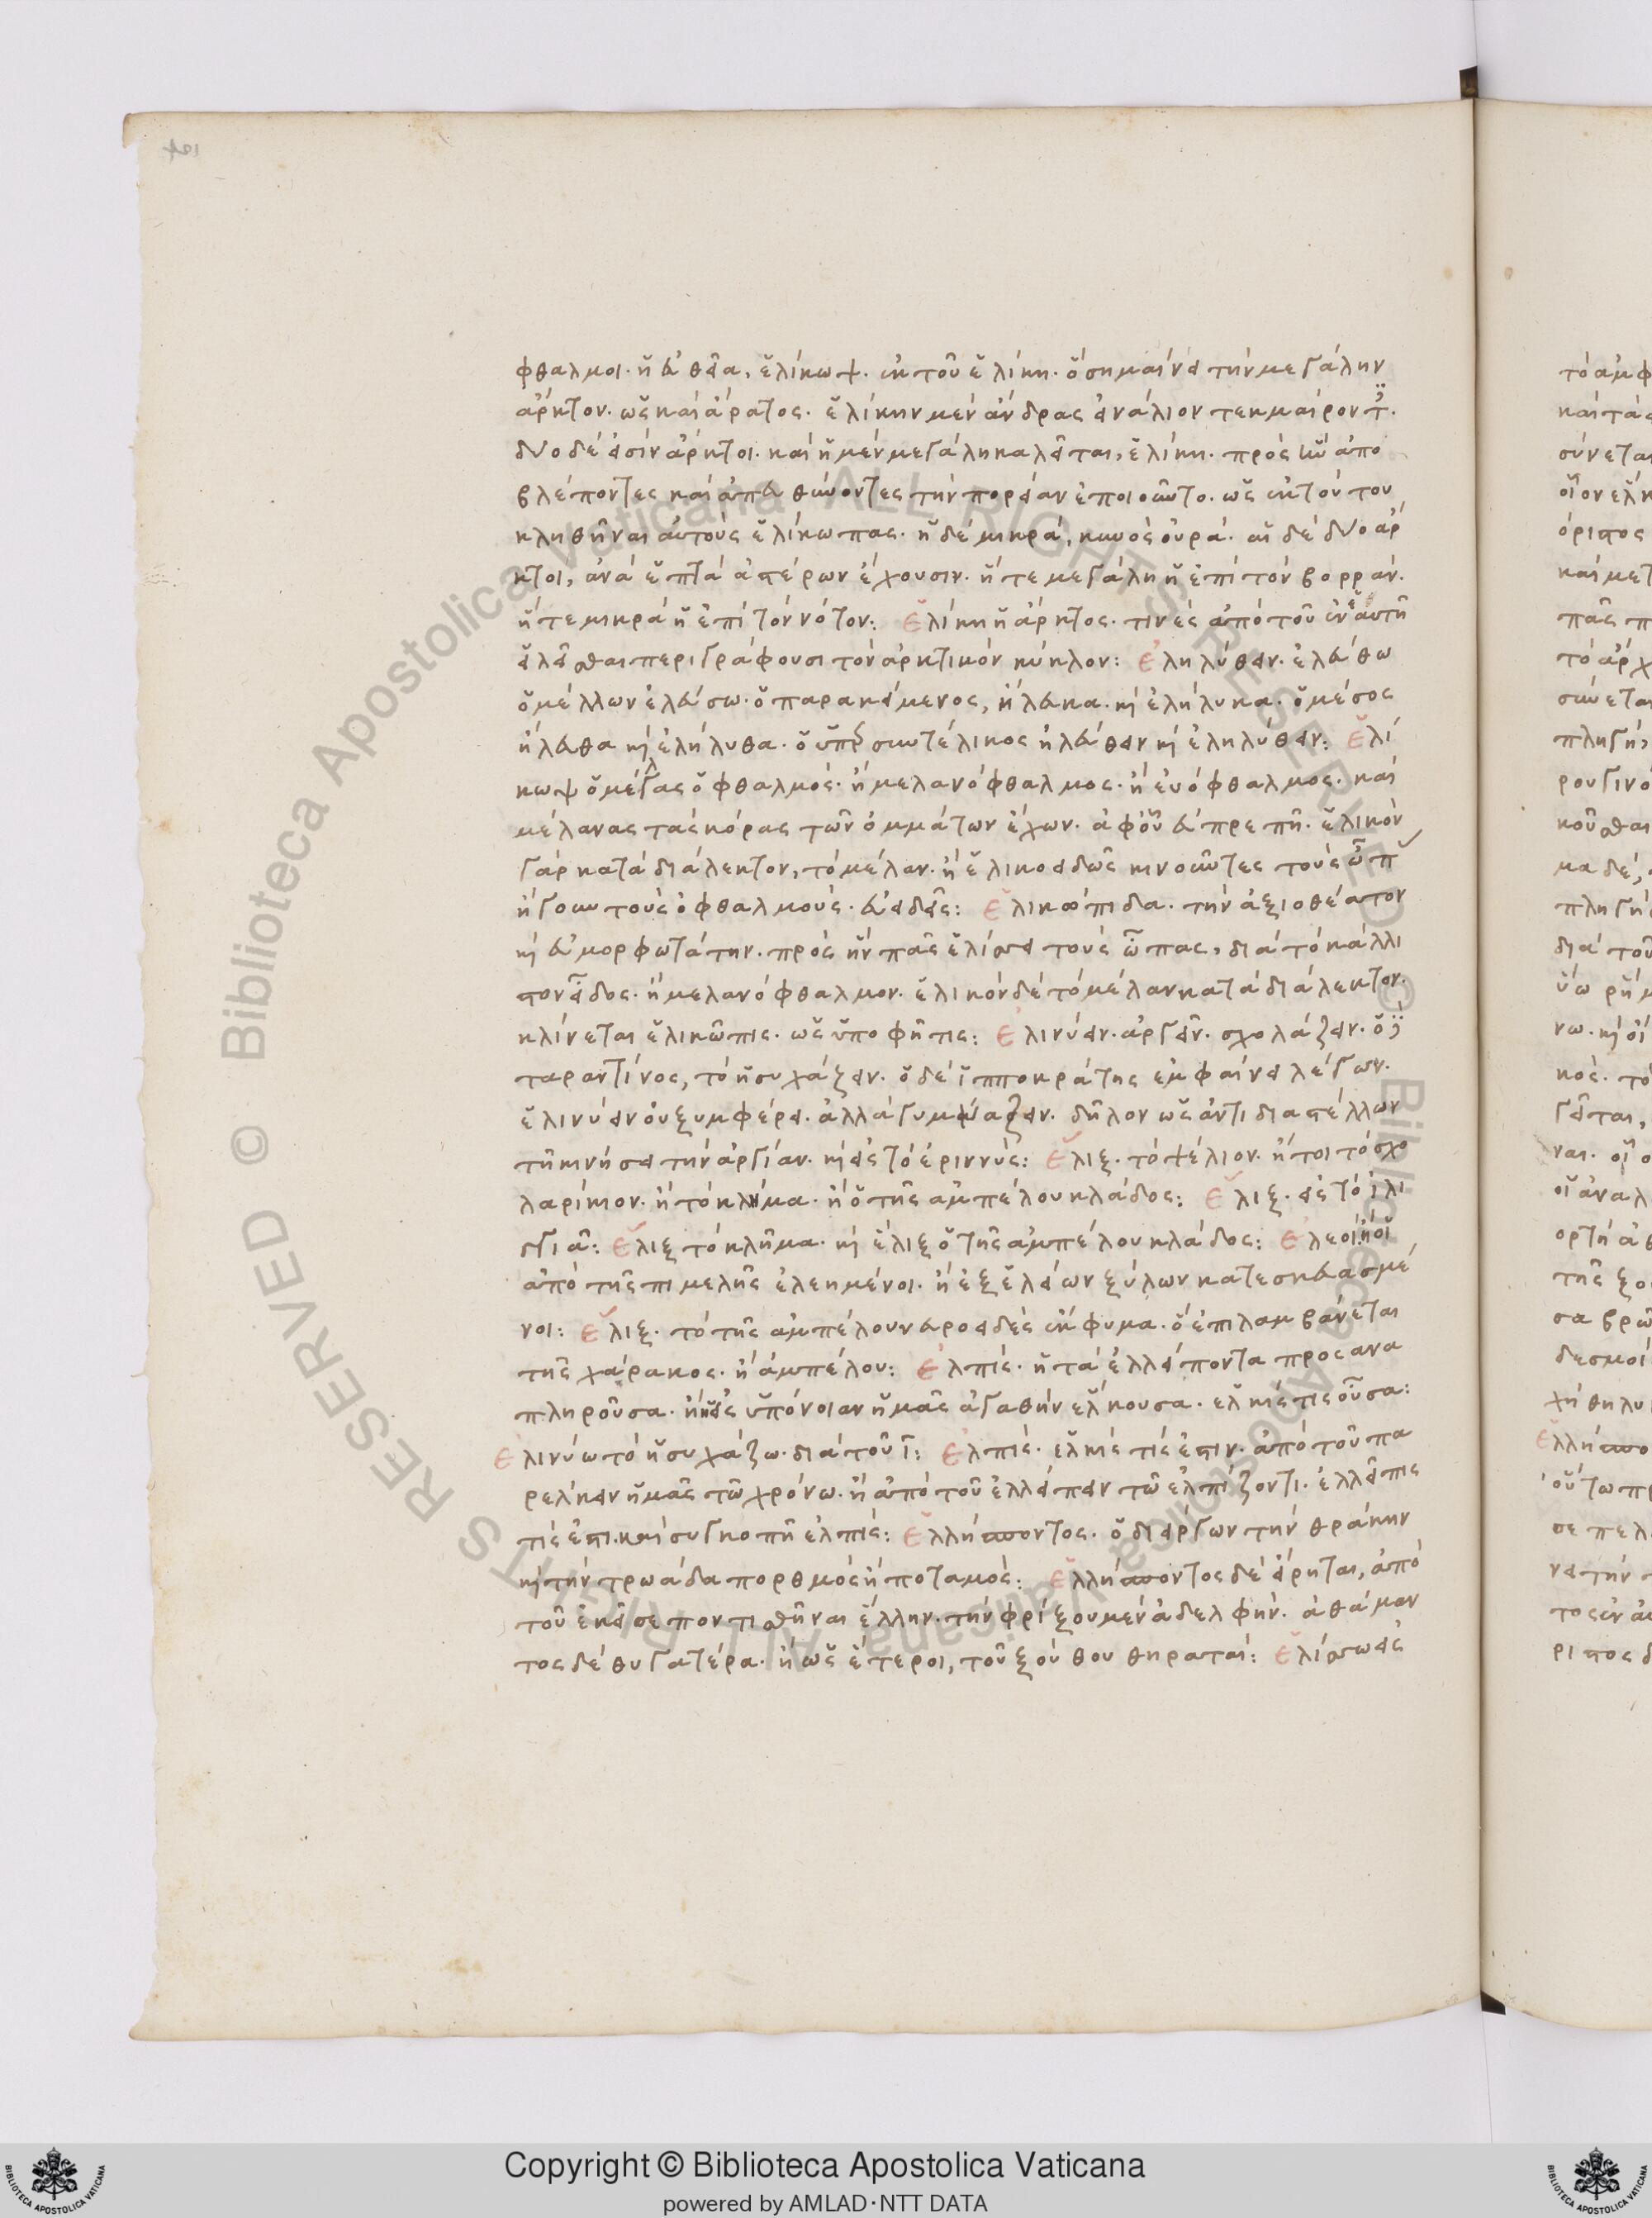 φθαλμοι. ἡ εὐθεῖα, ἑλίκωψ. ἐκ τοῦ ἑλίκη. ὃ σημαίνει τὴν μεγάλην
ἄρκτον. ὡς καὶ ἄρατος. ἑλίκην μὲν ἄνδρας ἐνάλιον τεκμαίροντ.
δύο δέ εἰσιν ἄρκτοι. καὶ ἡ μὲν μεγάλη καλεῖται, ἑλίκη. πρὸς ἣν ἀπο
βλέποντες καὶ ἀπευθύνοντες τὴν πορείαν ἐποιοῦντο. ὡς ἐκ τού του
κληθῆναι αὐτοὺς ἑλίκωπας. ἡ δὲ μικρά, κυνὸς οὐρά. αἱ δὲ δύο ἄρ
κτοι, ἀνὰ ἑπτὰ ἀστέρων ἔχουσιν. ἥ τε μεγάλη ἡ ἐπὶ τὸν βορρᾶν.
ἥ τε μικρὰ ἡ ἐπὶ τὸν νότον: Ἑλίκη ἡ ἄρκτος. τινὲς ἀπὸ τοῦ ἐν ἑαυτῇ
εἰλεῖσθαι περιγράφουσι τὸν ἀρκτικὸν κύκλον: Ἐληλύθειν. ἐλεύθω
ὁ μέλλων ἐλεύσω. ὁ παρακείμενος, ἤλευκα. καὶ ἐλήλυκα. ὁ μέσος
ἤλευθα καὶ ἐλήλυθα. ὁ ὑπερσυντέλικος ἠλεύθειν καὶ ἐληλύθειν: Ἑλί
κωψ ὁ μέγας ὀφθαλμός. ἢ μελανόφθαλμος. ἢ εὐόφθαλμος. καὶ
μέλανας τὰς κόρας τῶν ὀμμάτων ἔχων. ἀφ' οὗ εὐπρεπῆ. ἑλικὸν
γὰρ κατὰ διάλεκτον, τὸ μέλαν. ἢ ἑλικοειδῶς κινοῦντες τοὺς ὦπ
ἤγουν τοὺς ὀφθαλμούς. εὐειδεῖς: Ἑλικώπιδα. τὴν ἀξιοθέατον
καὶ εὐμορφωτάτην. πρὸς ἣν πᾶς ἑλίσσει τοὺς ὦπας, διὰ τὸ κάλλι
στον εἶδος. ἢ μελανόφθαλμον. ἑλικὸν δὲ τὸ μέλαν κατὰ διάλεκτον.
κλίνεται ἑλικῶπις. ὡς ὑποφῆτις: Ἐλινύειν. ἀργεῖν. σχολάζειν. ὁ
ταραντῖνος, τὸ ἡσυχάζειν. ὁ δὲ ἱπποκράτης ἐμφαίνει λέγων.
ἐλινύειν οὐ ξυμφέρει. ἀλλὰ γυμνάζειν. δῆλον ὡς ἀντιδιαστέλλων
τῇ κινήσει τὴν ἀργίαν. καὶ εἰς τὸ ἐριννύς: Ἕλιξ. τὸ ψέλιον. ἤτοι τὸ σχο
λαρίκιον. ἢ τὸ κλῆμα. ἢ ὁ τῆς ἀμπέλου κλάδος: Ἕλιξ. εἰς τὸ ἰλι
Ἕλιξ τὸ κλῆμα. καὶ ἕλιξ ὁ τῆς ἀμπέλου κλάδος: Ἐλεοὶ ἢ οἱ
ἀπὸ τῆς πιμελῆς ἐλεημένοι. ἢ ἐξ ἐλείων ξύλων κατεσκευασμέ
νοι: Ἕλιξ. τὸ τῆς ἀμπέλου νευροειδὲς ἔκφυμα. ὃ ἐπιλαμβάνεται
τῆς χάρακος. ἢ ἀμπέλου: Ἐλπίς. ἡ τὰ ἐλλείποντα προσανα
πληροῦσα. ἢ εἰς ὑπόνοιαν ἡμᾶς ἀγαθὴν ἕλκουσα. ἑλκίς τις οὖσα:
Ἐλινύω τὸ ἡσυχάζω. διὰ τοῦ ι: Ἐλπίς. ἑλκίς τίς ἐστιν. ἀπὸ τοῦ πα
ρέλκειν ἡμᾶς τῷ χρόνω. ἢ ἀπὸ τοῦ ἐλλείπειν τῷ ἐλπίζοντι. ἐλλειπίς
τίς ἐστι. καὶ συγκοπῇ ἐλπίς: Ἑλλήσποντος. ὁ διείργων τὴν θράκην
καὶ τὴν τρωάδα πορθμὸς ἢ ποταμός: Ἑλλήσποντος δὲ εἴρηται, ἀπὸ
τοῦ ἐκεῖσε ποντισθῆναι ἕλλην. τὴν φρίξου μὲν ἀδελφήν. ἀθάμαν
τος δὲ θυγατέρα. ἢ ὡς ἕτεροι, τοῦ ξούθου θηραταί: Ἑλίσσω εἰς
Copyright © Biblioteca Apostolica Vaticana
powered by AMLAD·NTT DATA